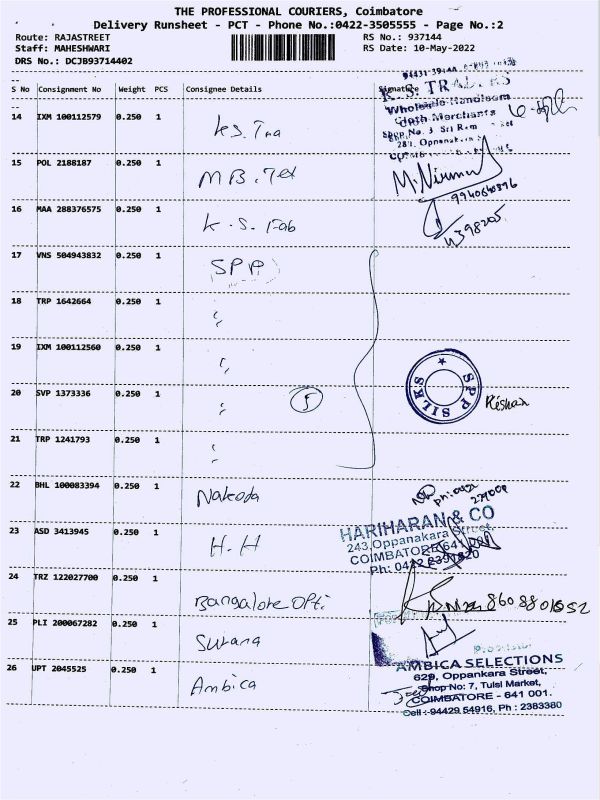 THE PROFESSIONAL COURIERS, Coimbatore
Delivery Runsheet - PCT - Phone No.:0422-3505555 - Page No.:2
Route: RAJASTREET
RS No.: 937144
Staff: MAHESHWARI
RS Date: 10-May-2022
DRS No.: DCJB93714402
S No Consignment No Weight PCS Consignee Details Signature
K.S. TRADERS
Wholesale Handloom
Cloth Merchants
Shop No. 3 Sri Ram
287, Oppanakara
14 IXM 100112579 0.250 1 K.S. Tra
15 POL 2188187 0.250 1 M B. Tex
M. Nirmal
9940640396
16 MAA 288376575 0.250 1 K. S. Fab
17 VNS 504943832 0.250 1 SPP
18 TRP 1642664 0.250 1 "
19 IXM 100112560 0.250 1 "
SPP SILKS
20 SVP 1373336 0.250 1 " 5
21 TRP 1241793 0.250 1 "
22 BHL 100083394 0.250 1 Nakoda
23 ASD 3413945 0.250 1 H. H
HARIHARAN & CO
243, Oppanakara Street,
COIMBATORE 641 001
Ph: 0422
24 TRZ 122027700 0.250 1 Bangalore Opti
25 PLI 200067282 0.250 1 Surana
26 UPT 2045525 0.250 1 Ambica
AMBICA SELECTIONS
629, Oppankara Street,
Shop No: 7, Tulsi Market,
COIMBATORE - 641 001.
Cell : 94429 54916, Ph : 2383380